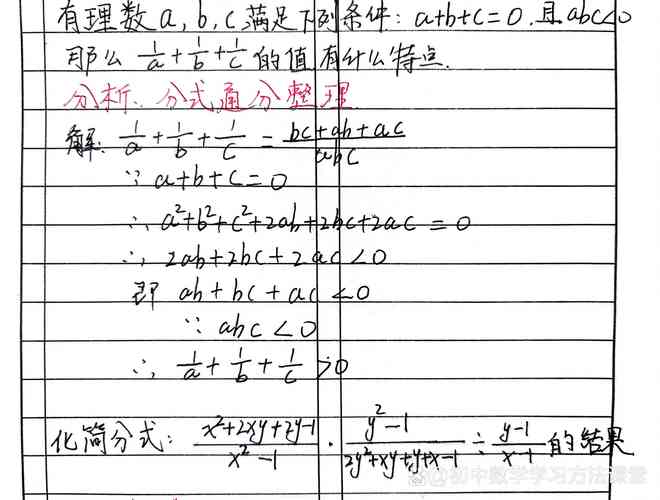 有理数a,b,c,满足下列条件: a+b+c=0,且abc<0
那么 1/a+1/b+1/c 的值有什么特点.
分析:分式通分整理
解: 1/a+1/b+1/c = (bc+ab+ac)/abc
∵ a+b+c=0
∴ a²+b²+c²+2ab+2bc+2ac=0
∴ 2ab+2bc+2ac<0
即 ab+bc+ac<0
∵ abc<0
∴ 1/a+1/b+1/c>0
化简分式: (x²+2xy+2y-1)/(x²-1) · (y²-1)/(2y²+xy+y+x-1) ÷ (y-1)/(x-1) 的结果
@初中数学学习方法课堂